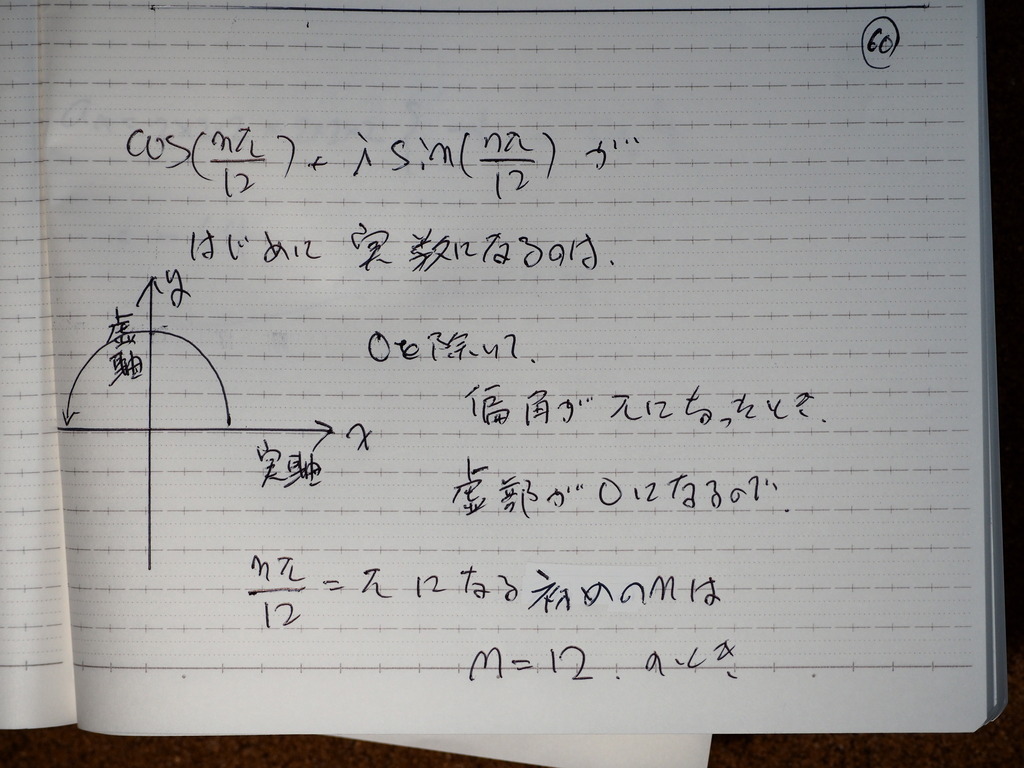 60
cos(nπ/12) + i sin(nπ/12) が…
はじめに 実数になるのは.
y
虚軸
0を除いて.
偏角がπになったとき.
x
実軸
虚部が0になるので.
nπ/12 = π になる初めのnは
n=12. のとき